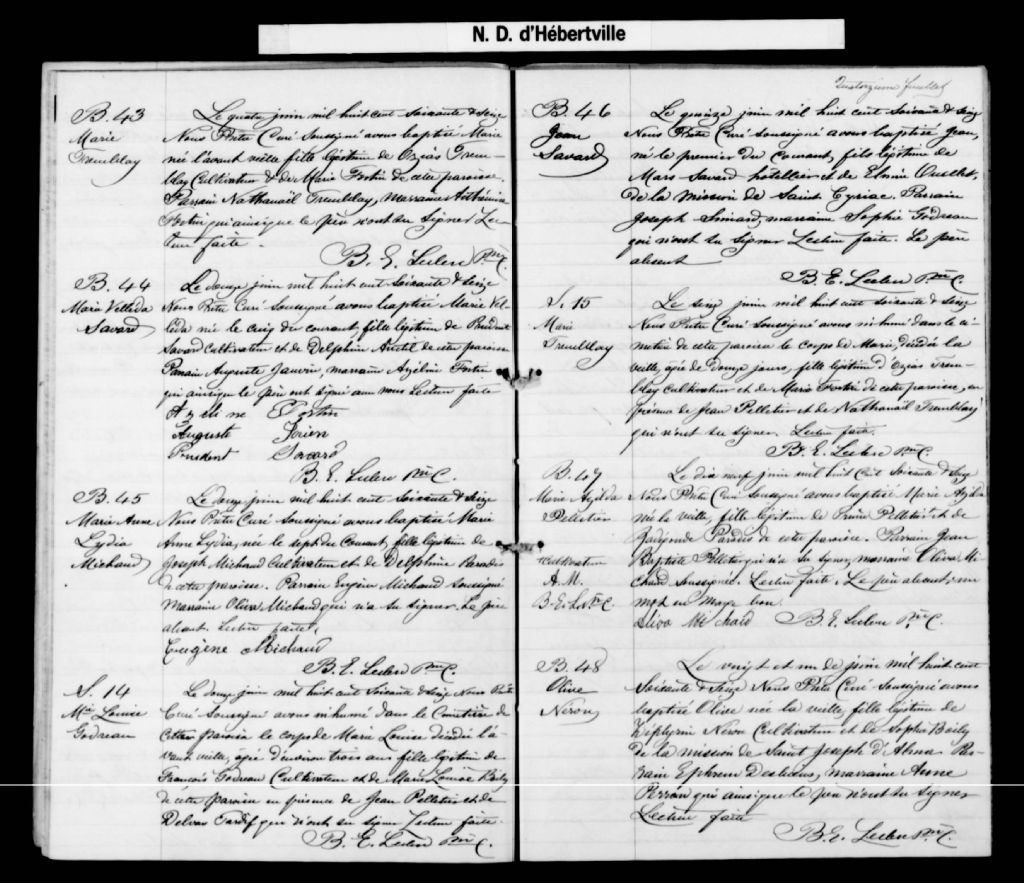 N. D. d'Hébertville
B. 43
Marie
Tremblay
Le quatre juin mil huit cent soixante & seize
Nous Prêtre Curé soussigné avons baptisé Marie
née l'avant veille fille légitime de Ozias Trem-
blay Cultivateur & de Marie Fortin de cette paroisse.
Parrain Nathanaël Tremblay, Marraine
Fortin qui ainsi que le père n'ont su signer Lec-
ture faite.
B. E. Leclerc Ptre C.
B. 44
Marie Velléda
Savard
Le douze juin mil huit cent soixante & seize
Nous Prêtre Curé soussigné avons baptisé Marie Vel-
léda née le cinq du courant, fille légitime de Prudent
Savard Cultivateur et de Delphine de cette paroisse
Parrain Auguste marraine Azéline Fortin
qui ainsi que le père ont signé avec nous Lecture faite
Azeline Fortin
Auguste
Prudent Savard
B. E. Leclerc Ptre C.
B. 45
Marie Anne
Lydia
Michaud
Le douze juin mil huit cent soixante & seize
Nous Prêtre Curé soussigné avons baptisé Marie
Anne Lydia, née le sept du courant, fille légitime de
Joseph Michaud Cultivateur et de Delphine Paradis
de cette paroisse. Parrain Eugène Michaud soussigné
Marraine Olive Michaud qui n'a su signer. Le père
absent. Lecture faite.
Eugène Michaud
B. E. Leclerc Ptre C.
S. 14
Mie Louise
Godreau
Le douze juin mil huit cent soixante & seize Nous Prêt
Curé soussigné avons inhumé dans le Cimetière de
Cette paroisse le corps de Marie Louise décédée l'a-
vant veille, âgée d'environ trois ans fille légitime de
François Godreau Cultivateur et de Marie Louise
de cette paroisse en présence de Jean Pelletier et de
Tardif qui n'ont su signer Lecture faite.
B. E. Leclerc Ptre C.
B. 46
Jean
Savard
Le quinze juin mil huit cent soixante & seize
Nous Prêtre Curé soussigné avons baptisé Jean,
né le premier du courant, fils légitime de
Mars Savard hotellier et de Elmire Ouellet,
de la mission de Saint Cyriac. Parrain
Joseph Simard marraine Sophie Godreau
qui n'ont su signer Lecture faite. Le père
absent
B. E. Leclerc Ptre C.
S. 15
Marie
Tremblay
Le seize juin mil huit cent soixante & seize
Nous Prêtre Curé soussigné avons inhumé dans le ci-
metière de cette paroisse le corps de Marie, décédée la
veille, âgée de douze jours, fille légitime d'Ozias Trem-
blay Cultivateur et de Marie Fortin de cette paroisse, en
présence de Jean Pelletier et de Nathanaël Tremblay
qui n'ont su signer. Lecture faite.
B. E. Leclerc Ptre C.
B. 47
Marie Azilda
Pelletier
Cultivateur
A. M.
B. E. L. Ptre C.
Le dix neuf juin mil huit cent soixante & seize
Nous Prêtre Curé soussigné avons baptisé Marie Azilda
née la veille, fille légitime de Pelletier & de
Paradis de cette paroisse. Parrain Jean
Baptiste Pelletier qui n'a su signer, marraine Olive Mi-
chaud soussignée. Lecture faite. Le père absent; un
mot en marge bon.
Michaud B. E. Leclerc Ptre C.
B. 48
Olive
Néron
Le vingt et un de juin mil huit cent
Soixante & seize Nous Prêtre Curé soussigné avons
baptisé Olive née la veille, fille légitime de
Zéphyrin Néron Cultivateur et de Sophie Boily
de la mission de Saint Joseph d'Alma. Par-
rain Ephrem marraine Anne
qui ainsi que le père n'ont su signer
Lecture faite
B. E. Leclerc Ptre C.